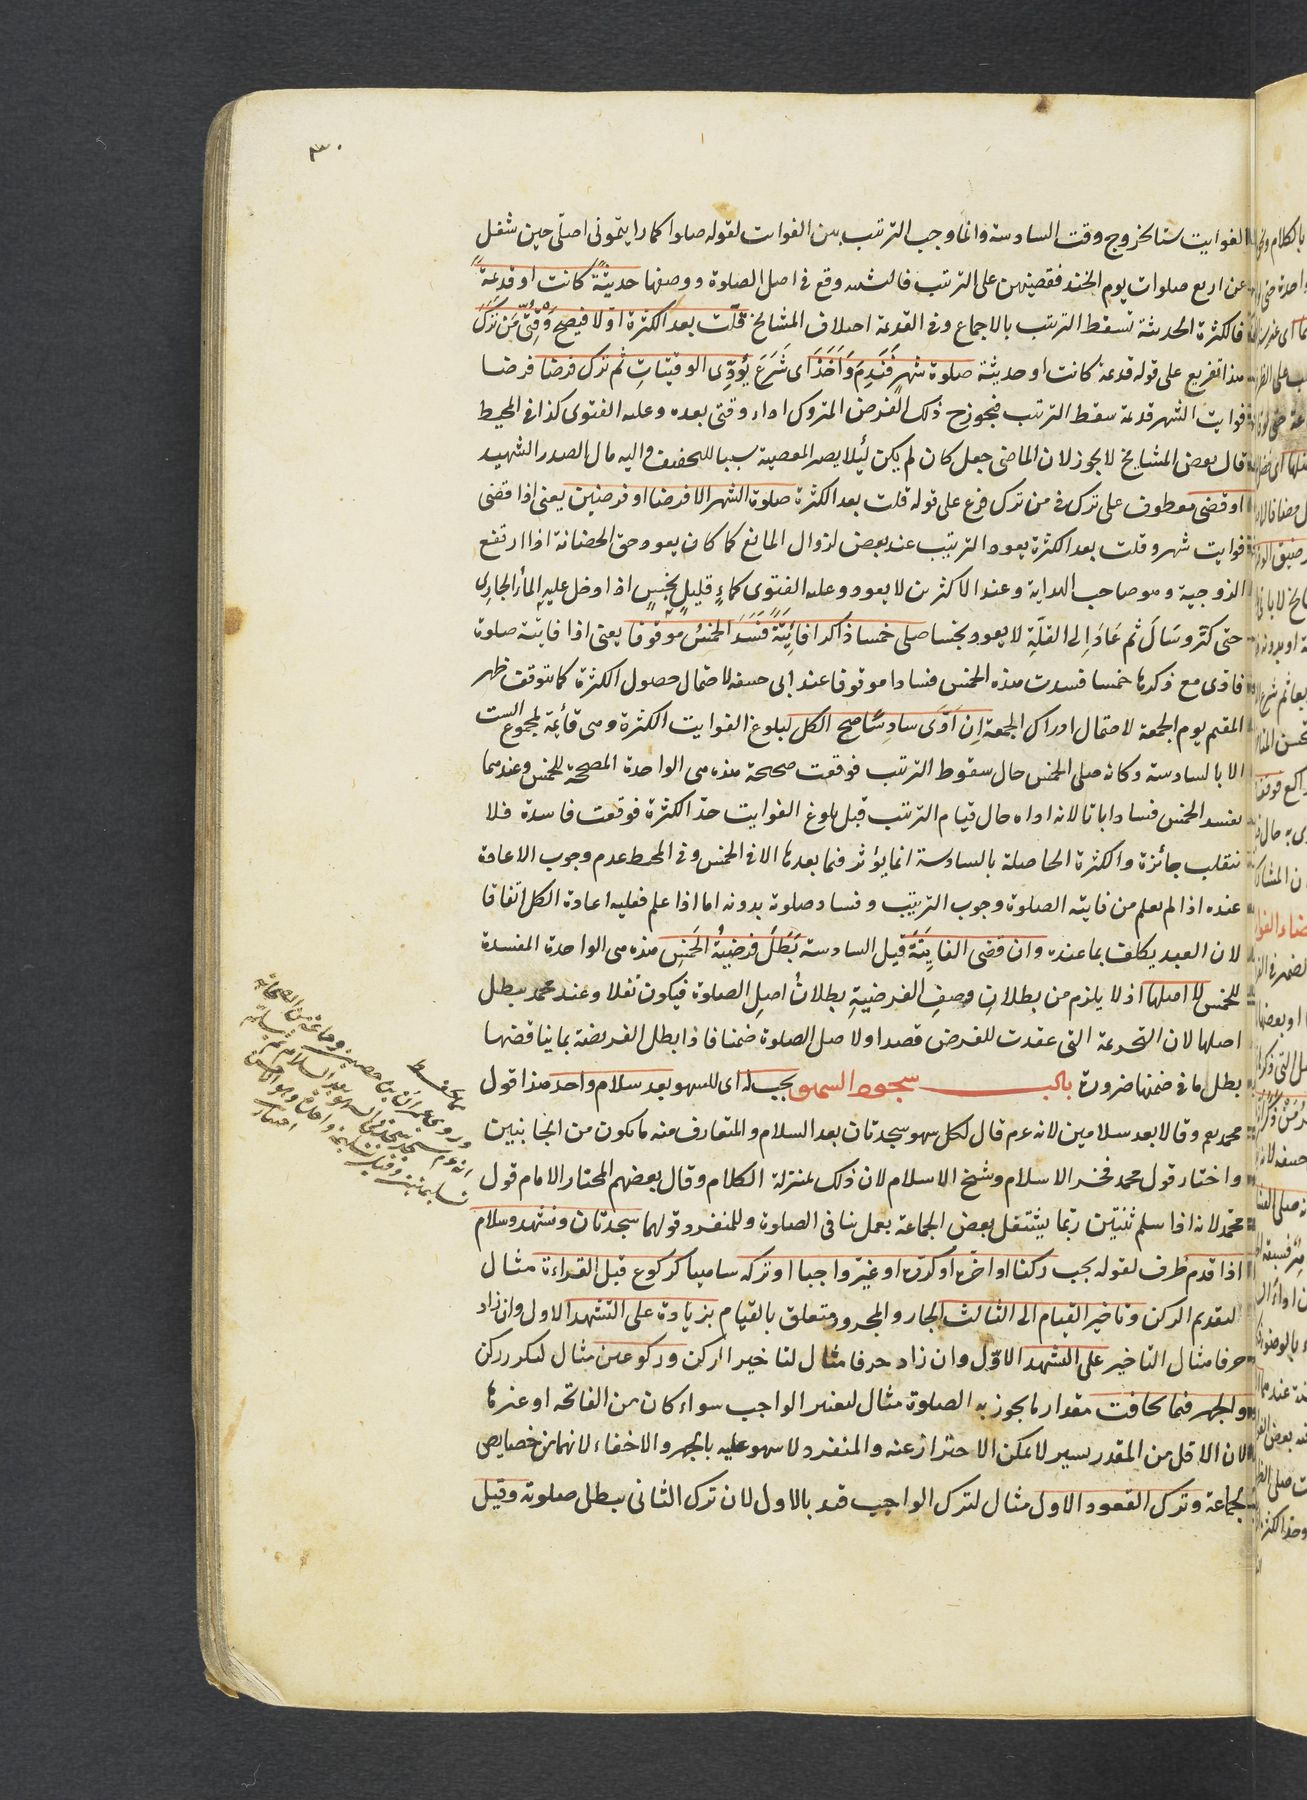 ٣٠
الفوايت ستا لخروج وقت السادسة وانما وجب الترتب بين الفوايت لقوله صلوا كما رايتمونى اصلى حين شغل
عن اربع صلوات يوم الخندق فقضيهن على الترتب فالشبه وقع فى اصل الصلوة ووصفها حديثة كانت او قديمة
فالكثرة الحديثة تسقط الترتب بالاجماع وفى القديمة اختلاف المشايخ قلت بعد الكثرة اولا فيصح وقتى من ترك
هذا تفريع على قوله قديمة كانت او حديثة صلوة شهر فندم واخذ اى شرع يؤدى الوقتيات ثم ترك فرضا فرضا
فوايت الشهر قديمة سقط الترتب فيجوز ح ذلك الفرض المتروك اداء وقتى بعده وعليه الفتوى كذا فى المحيط
قال بعض المشايخ لا يجوز لان الماضى جعل كان لم يكن لئلا يصير المعصية سببا للتخفيف واليه مال الصدر الشهيد
او قضى معطوف على ترك فى من ترك فرع على قوله قلت بعد الكثرة صلوة الشهر الا فرضا او فرضين يعنى اذا قضى
فوايت شهر وقلت بعد الكثرة يعود الترتيب عند بعض لزوال المانع كما كان يعود حق الحضانة اذا ارتفع
الزوجية وهو صاحب الهداية وعند الاكثرين لا يعود وعليه الفتوى كماء قليل نجس اذا دخل عليه الماء الجارى
حتى كثر وسال ثم عاد الى القلة لا يعود نجسا صلى خمسا ذاكرا فائتة فسد الخمس موقوفا يعنى اذا فايتة صلوة
فادى مع ذكرها خمسا فسدت هذه الخمس فسادا موقوفا عند ابى حنيفة لاحتمال حصول الكثرة كما يتوقف ظهر
المقيم يوم الجمعة لاحتمال ادراك الجمعة ان ادى سادسا صح الكل لبلوغ الفوايت الكثرة وهى قائمة بمجموع الست
الا بالسادسة وكانه صلى الخمس حال سقوط الترتب فوقعت صحيحة هذه هى الواحدة المصححة للخمس وعندهما
يفسد الخمس فسادا باتا لانه اداه حال قيام الترتب قبل بلوغ الفوايت حد الكثرة فوقعت فاسدة فلا
تنقلب جائزة والكثرة الحاصلة بالسادسة انما يؤثر فيما بعدها الا فى الخمس وفى المحيط عدم وجوب الاعادة
عنده اذا لم يعلم من فايته الصلوة وجوب الترتيب وفساد صلوة بدونه اما اذا علم فعليه اعادة الكل اتفاقا
لان العبد يكلف بما عنده وان قضى الفايتة قبل السادسة بطل فرضية الخمس هذه هى الواحدة المفسدة
للخمس لا اصلها اذ لا يلزم من بطلان وصف الفرضية بطلان اصل الصلوة فيكون نفلا وعند محمد يبطل
اصلها لان التحريمة التى عقدت للفرض قصدا ولاصل الصلوة ضمنا فاذا بطل الفريضة بما يناقضها
بطل ما فى ضمنها ضرورة باب سجود السهو يجب له اى للسهو بعد سلام واحد هذا قول
محمد رحمه وقالا بعد سلامين لانه عم قال لكل سهو سجدتان بعد السلام والمتعارف منه ما يكون من الجانبين
واختار قول محمد فخر الاسلام وشيخ الاسلام لان ذلك بمنزلة الكلام وقال بعضهم المختار للامام قول
محمد لانه اذا سلم ثنتين ربما يشتغل بعض الجماعة بعمل ينافى الصلوة وللمنفرد قولهما سجدتان وتشهد وسلام
اذا قدم ظرف لقوله يجب ركنا او اخره او كرره او غير واجبا او تركه ساهيا كركوع قبل القراءة مثال
لتقديم الركن وتاخير القيام الى الثالث الجار والمجرور متعلق بالقيام بزيادة على التشهد الاول وان زاد
حرفا مثال التاخير على التشهد الاول وان زاد حرفا مثال لتاخير الركن وركوعين مثال لتكرر ركن
والجهر فيما يخافت مقدار ما يجوز به الصلوة مثال لتغير الواجب سواء كان من الفاتحة او غيرها
لان الاقل من المقدر يسير لا يمكن الاحتراز عنه والمنفرد لا سهو عليه بالجهر والاخفاء لانهما من خصايص
لجماعة وترك القعود الاول مثال لترك الواجب قيد بالاول لان ترك الثانى يبطل صلوته وقيل
وروى عمران بن حصين وجماعة من الصحابة
انه عم سجد سجدتى السهو بعد السلام